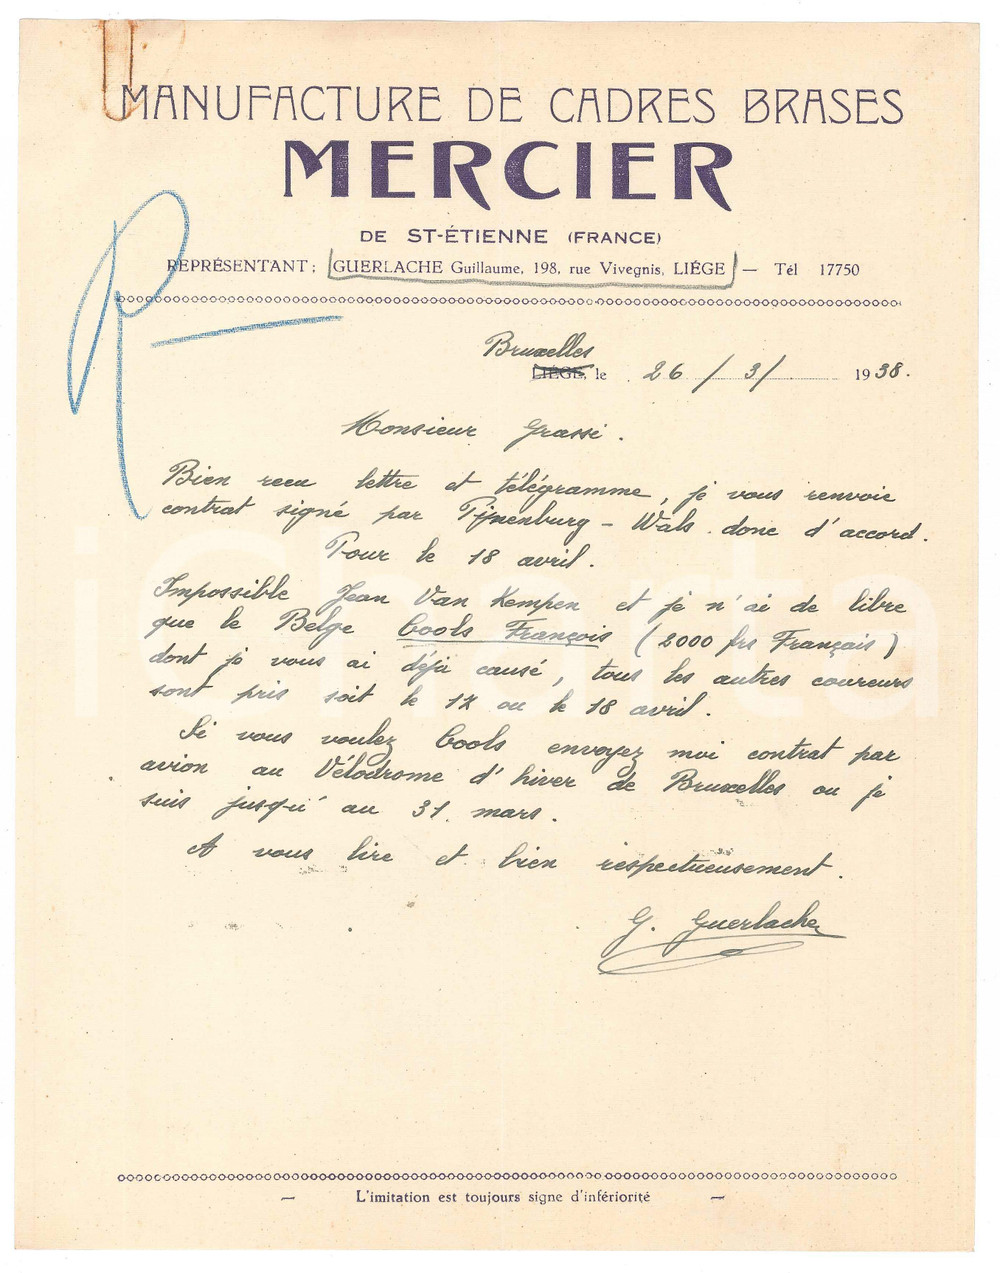 MANUFACTURE DE CADRES BRASES
MERCIER
DE ST-ÉTIENNE (FRANCE)
REPRÉSENTANT : GUERLACHE Guillaume, 198, rue Vivegnis, LIÉGE — Tél 17750
Bruxelles
LIÉGE, le 26 / 3 / 1938.
Monsieur Grassi.
Bien recu lettre et télégramme, je vous renvoie
contrat signé par Pijnenburg - Wals. donc d'accord.
Pour le 18 avril.
Impossible Jean Van Kempen et je n'ai de libre
que le Belge Cools François (2000 frs Français)
dont je vous ai déjà causé, tous les autres coureurs
sont pris soit le 17 ou le 18 avril.
Si vous voulez Cools envoyez moi contrat par
avion au Vélodrome d'hiver de Bruxelles ou je
suis jusqu'au 31. mars.
A vous lire et bien respectueusement.
G. Guerlache
L'imitation est toujours signe d'infériorité
R
iCharta